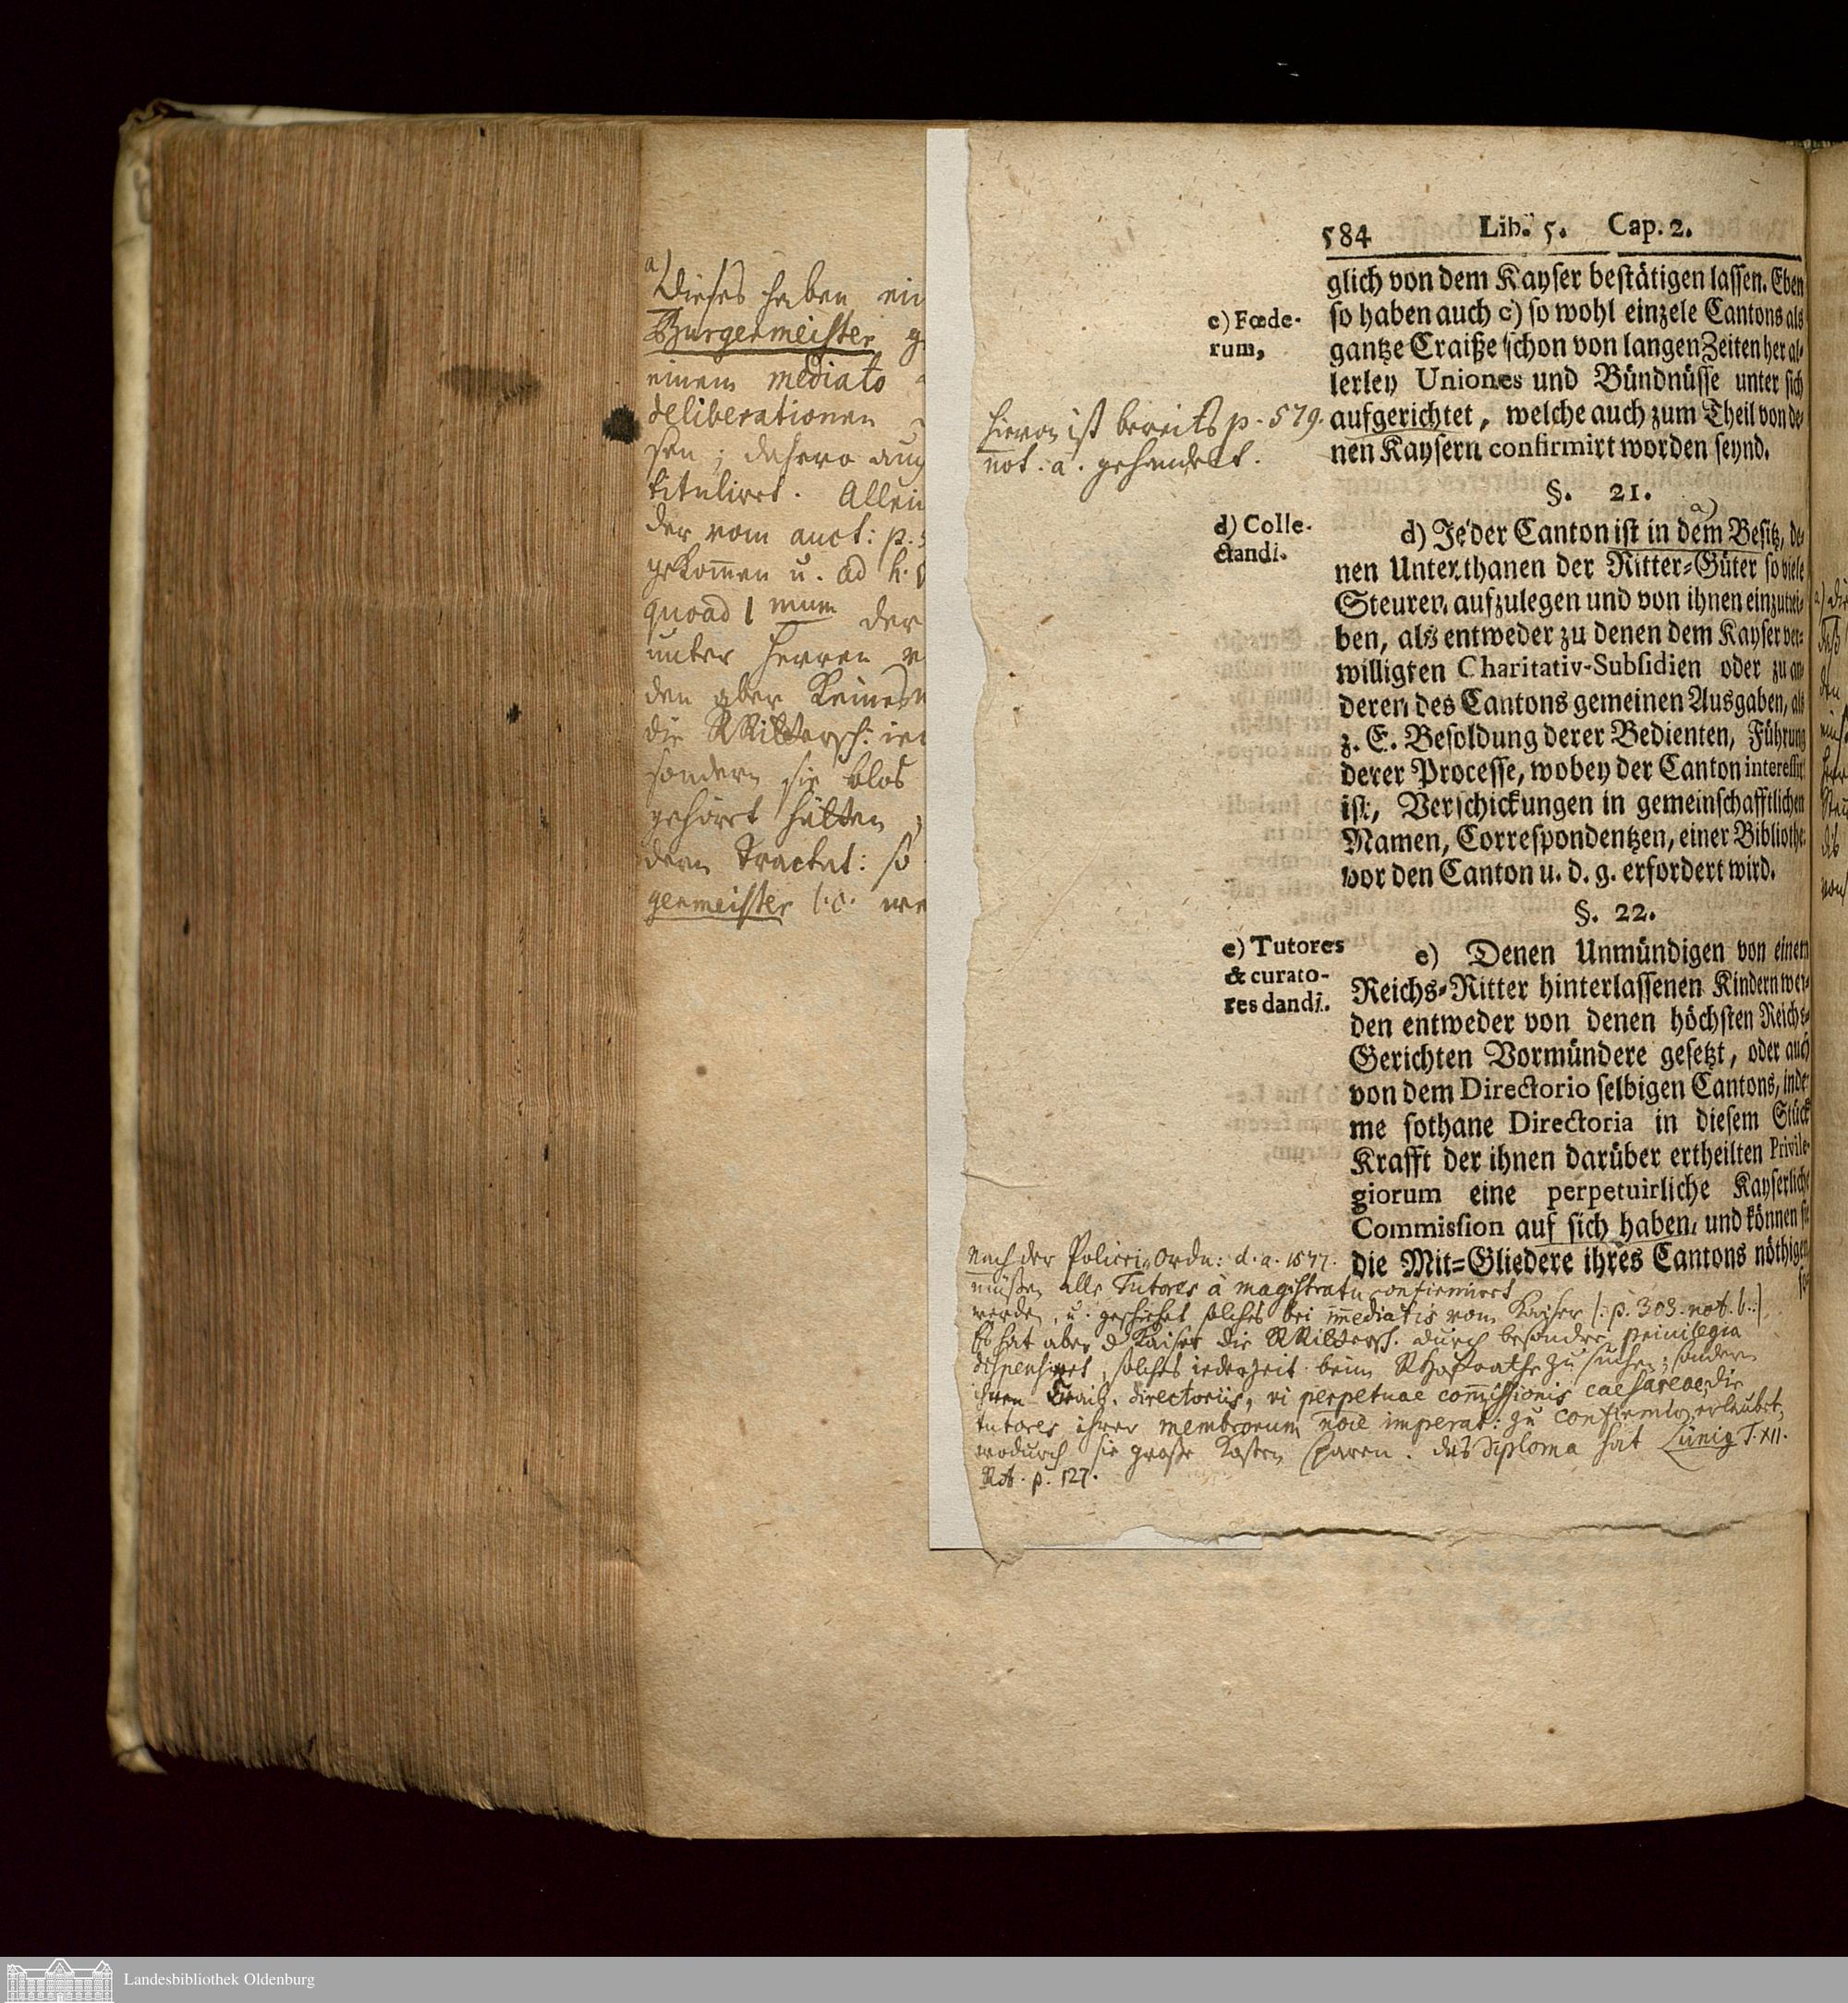 a)
Dieses haben ein
Burgermeister g
einem mediato
deliberationen
sen; dahero auch
titulirt. Allein
der vom auct: p. 5
gekommen u. ad h. §
quoad 1 mum der
unter Herren v
den aber keines
die RRittersch: ie
sondern sie blos
gehört hätten ;
dem Tractat: so
germeister l. c. we
584 Lib. 5. Cap. 2.
glich von dem Kayser bestätigen lassen. Eben
c) Fœde-
rum,
so haben auch c) so wohl einzele Cantons als
gantze Craiße schon von langen Zeiten her al-
lerley Uniones und Bündnüsse unter sich
aufgerichtet, welche auch zum Theil von de-
nen Kaysern confirmirt worden seynd.
hievon ist bereits p. 579.
not. a. gehandelt.
§. 21.
d) Colle-
ctandi.
d) Jeder Canton ist in dem Besitz, de-
nen Unterthanen der Ritter-Güter so viele
Steuren aufzulegen und von ihnen einzutrei-
ben, als entweder zu denen dem Kayser ver-
willigten Charitativ-Subsidien oder zu an-
deren des Cantons gemeinen Ausgaben, als
z. E. Besoldung derer Bedienten, Führung
derer Processe, wobey der Canton interessirt
ist, Verschickungen in gemeinschafftlichen
Namen, Correspondentzen, einer Bibliothec
vor den Canton u. d. g. erfordert wird.
§. 22.
e) Tutores
& curato-
res dandi.
e) Denen Unmündigen von einem
Reichs-Ritter hinterlassenen Kindern wer-
den entweder von denen höchsten Reichs-
Gerichten Vormündere gesetzt, oder auch
von dem Directorio selbigen Cantons, inde-
me sothane Directoria in diesem Stück
Krafft der ihnen darüber ertheilten Privile-
giorum eine perpetuirliche Kayserliche
Commission auf sich haben, und können sie
die Mit-Gliedere ihres Cantons nöthigen
so
nach der Policei-Ordn: d. a. 1577.
müßen alle Tutores à magistratu confirmirt
werden, u. geschiehet solches bei immediatis vom Kaiser (: p. 303. not. b. :)
Es hat aber d Kaiser die RRittersch. durch besondre privilegia
dispensiret, solches iederzeit beim RHofrathe zu suchen; sondern
ihren Craiß. directoriis, vi perpetuae commissionis caesareae, die
tutores ihrer membrorum noie imperat: zu confirmiren erlaubet,
wodurch sie große Kosten sparen. das Diploma hat Lünig T. XII.
RA. p. 127.
Landesbibliothek Oldenburg